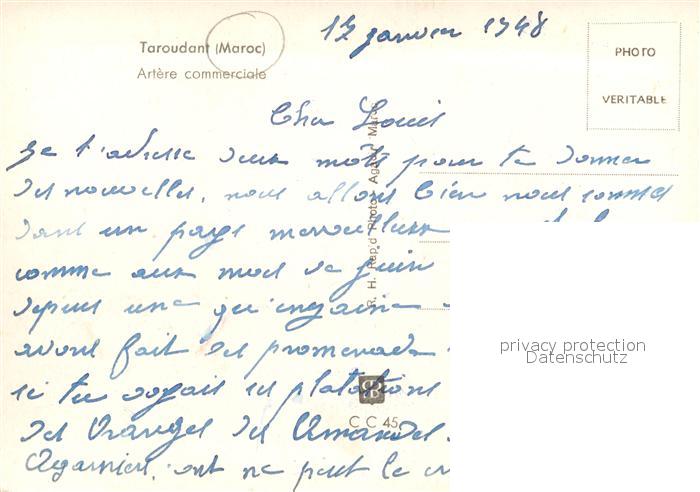 Taroudant (Maroc)
Artère commerciale
12 janvier 1948
PHOTO
VERITABLE
Cher Louis
Je t'adresse deux mots pour te donner
des nouvelles, nous allons bien nous sommes
dans un pays merveilleux
comme aux mois de Juin
depuis une qu'inzaine
avons fait des promenades
si tu voyais les platations
des Oranges des Amandes
ont ne peut le
R. H. Rap'd Photo - Agadir Maroc
C C 45
privacy protection
Datenschutz